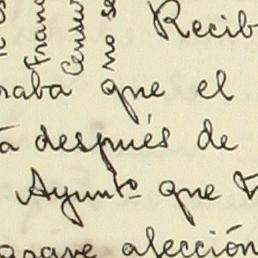 Recib
raba que el
á después de
Ayunto que
grave afección
Censur
no se